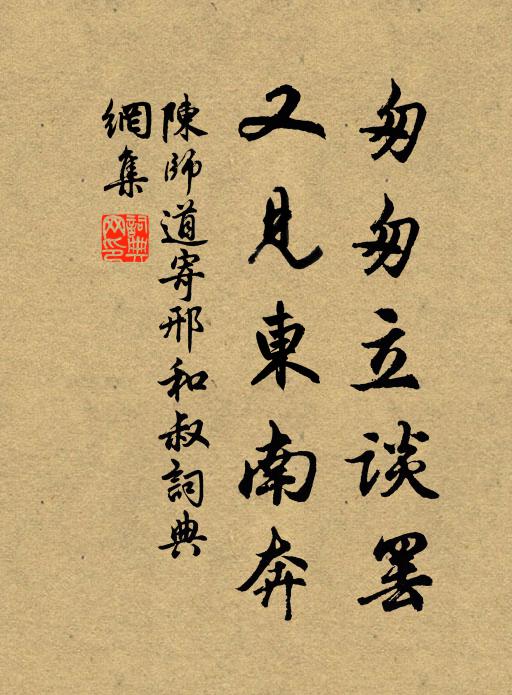 匆匆立談罷
又見東南奔
陳師道寄邢和叔詞典
網集
詞典
网印